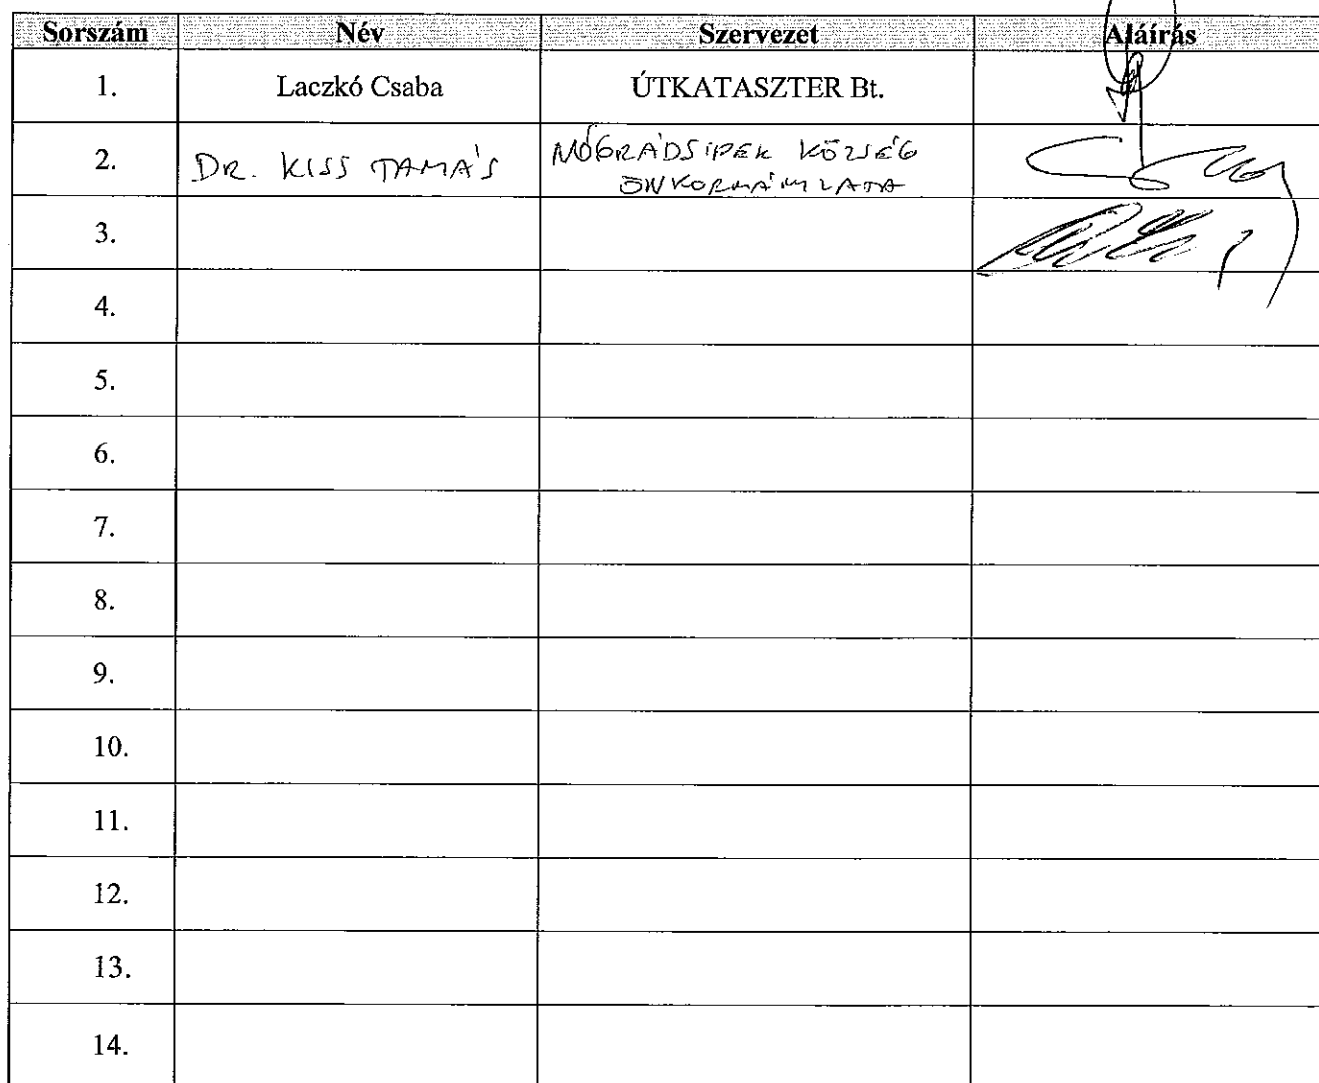 Sorszám Név Szervezet Aláírás
1. Laczkó Csaba ÚTKATASZTER Bt.
2. DR. KISS TAMÁS NÓGRÁDSIPEK KÖZSÉG
ÖNKORMÁNYZATA
3.
4.
5.
6.
7.
8.
9.
10.
11.
12.
13.
14.